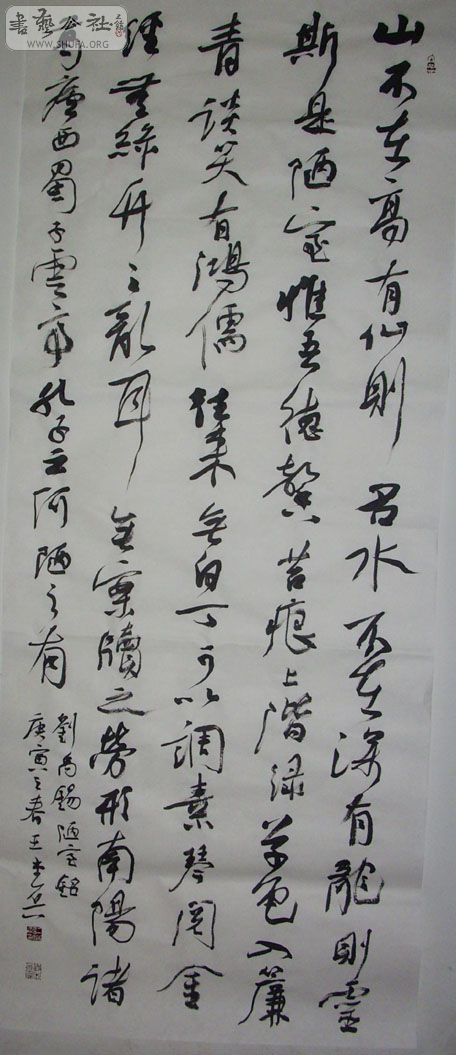 山不在高有仙則名水不在深有龍則靈
斯是陋室惟吾德馨苔痕上階緑草色入簾
青談笑有鴻儒往來無白丁可以調素琴閱金
經無絲竹之亂耳無案牘之勞形南陽諸
葛廬西蜀子雲亭孔子云何陋之有
劉禹錫陋室銘
庚寅之春王
書藝公社
WWW.SHUFA.ORG